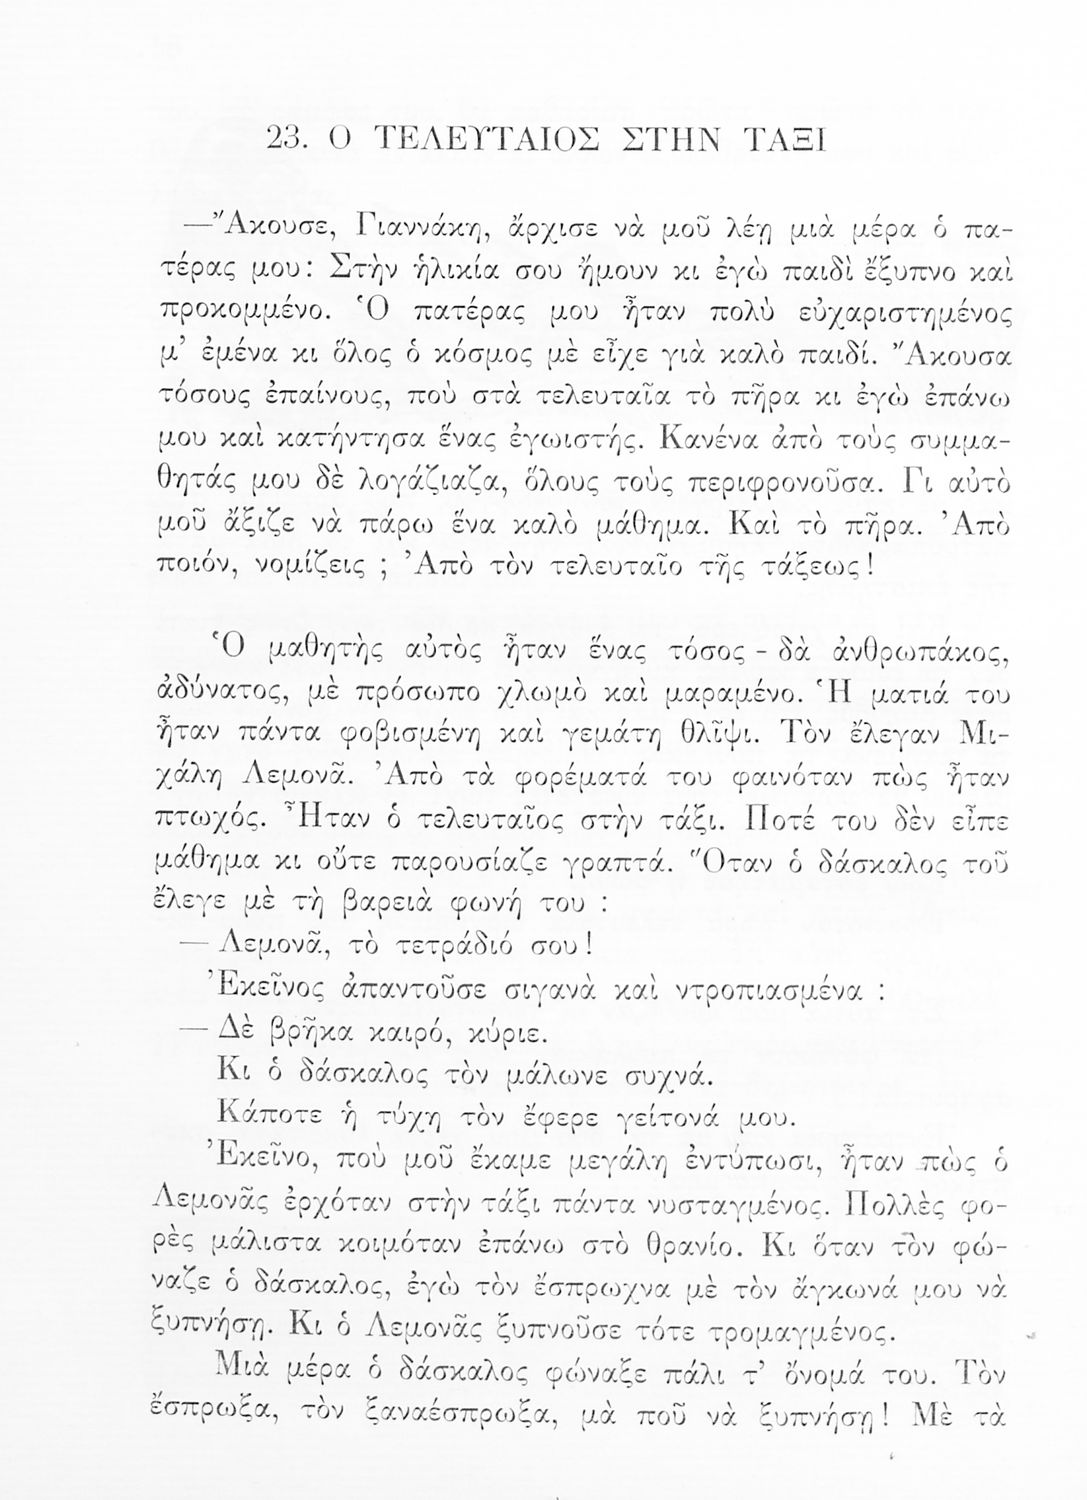 23. Ο ΤΕΛΕΥΤΑΙΟΣ ΣΤΗΝ ΤΑΞΙ
—Ἄκουσε, Γιαννάκη, ἄρχισε νὰ μοῦ λέη μιὰ μέρα ὁ πα-
τέρας μου: Στὴν ἡλικία σου ἤμουν κι ἐγὼ παιδὶ ἔξυπνο καὶ
προκομμένο. Ὁ πατέρας μου ἦταν πολὺ εὐχαριστημένος
μ’ ἐμένα κι ὅλος ὁ κόσμος μὲ εἶχε γιὰ καλὸ παιδί. Ἄκουσα
τόσους ἐπαίνους, ποὺ στὰ τελευταῖα τὸ πῆρα κι ἐγὼ ἐπάνω
μου καὶ κατήντησα ἕνας ἐγωιστής. Κανένα ἀπὸ τοὺς συμμα-
θητάς μου δὲ λογάζιαζα, ὅλους τοὺς περιφρονοῦσα. Γι αὐτὸ
μοῦ ἄξιζε νὰ πάρω ἕνα καλὸ μάθημα. Καὶ τὸ πῆρα. Ἀπὸ
ποιόν, νομίζεις ; Ἀπὸ τὸν τελευταῖο τῆς τάξεως!
Ὁ μαθητὴς αὐτὸς ἦταν ἕνας τόσος - δὰ ἀνθρωπάκος,
ἀδύνατος, μὲ πρόσωπο χλωμὸ καὶ μαραμένο. Ἡ ματιά του
ἦταν πάντα φοβισμένη καὶ γεμάτη θλῖψι. Τὸν ἔλεγαν Μι-
χάλη Λεμονᾶ. Ἀπὸ τὰ φορέματά του φαινόταν πὼς ἦταν
πτωχός. Ἦταν ὁ τελευταῖος στὴν τάξι. Ποτέ του δὲν εἶπε
μάθημα κι οὔτε παρουσίαζε γραπτά. Ὅταν ὁ δάσκαλος τοῦ
ἔλεγε μὲ τὴ βαρειὰ φωνή του :
— Λεμονᾶ, τὸ τετράδιό σου!
Ἐκεῖνος ἀπαντοῦσε σιγανὰ καὶ ντροπιασμένα :
— Δὲ βρῆκα καιρό, κύριε.
Κι ὁ δάσκαλος τὸν μάλωνε συχνά.
Κάποτε ἡ τύχη τὸν ἔφερε γείτονά μου.
Ἐκεῖνο, ποὺ μοῦ ἔκαμε μεγάλη ἐντύπωσι, ἦταν πὼς ὁ
Λεμονᾶς ἐρχόταν στὴν τάξι πάντα νυσταγμένος. Πολλὲς φο-
ρὲς μάλιστα κοιμόταν ἐπάνω στὸ θρανίο. Κι ὅταν τὸν φώ-
ναζε ὁ δάσκαλος, ἐγὼ τὸν ἔσπρωχνα μὲ τὸν ἄγκωνά μου νὰ
ξυπνήσῃ. Κι ὁ Λεμονᾶς ξυπνοῦσε τότε τρομαγμένος.
Μιὰ μέρα ὁ δάσκαλος φώναξε πάλι τ’ ὄνομά του. Τὸν
ἔσπρωξα, τὸν ξαναέσπρωξα, μὰ ποῦ νὰ ξυπνήσῃ! Μὲ τὰ